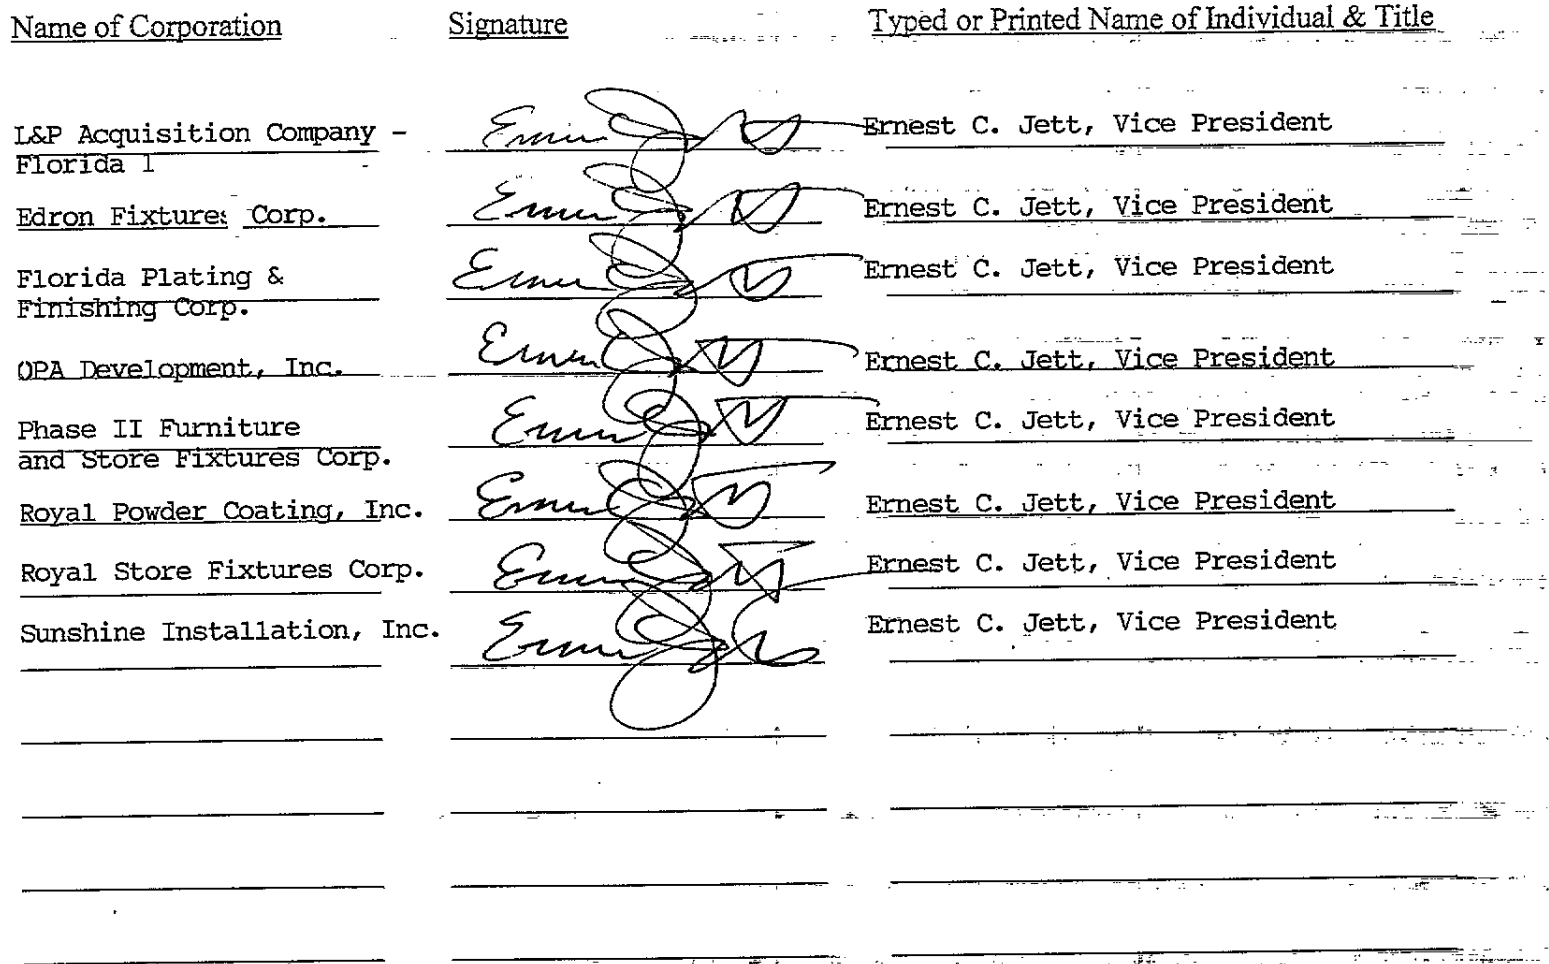 Name of Corporation Signature Typed or Printed Name of Individual & Title
L&P Acquisition Company - Ernest C. Jett, Vice President
Florida 1
Edron Fixtures Corp. Ernest C. Jett, Vice President
Florida Plating & Ernest C. Jett, Vice President
Finishing Corp.
OPA Development, Inc. Ernest C. Jett, Vice President
Phase II Furniture Ernest C. Jett, Vice President
and Store Fixtures Corp.
Royal Powder Coating, Inc. Ernest C. Jett, Vice President
Royal Store Fixtures Corp. Ernest C. Jett, Vice President
Sunshine Installation, Inc. Ernest C. Jett, Vice President